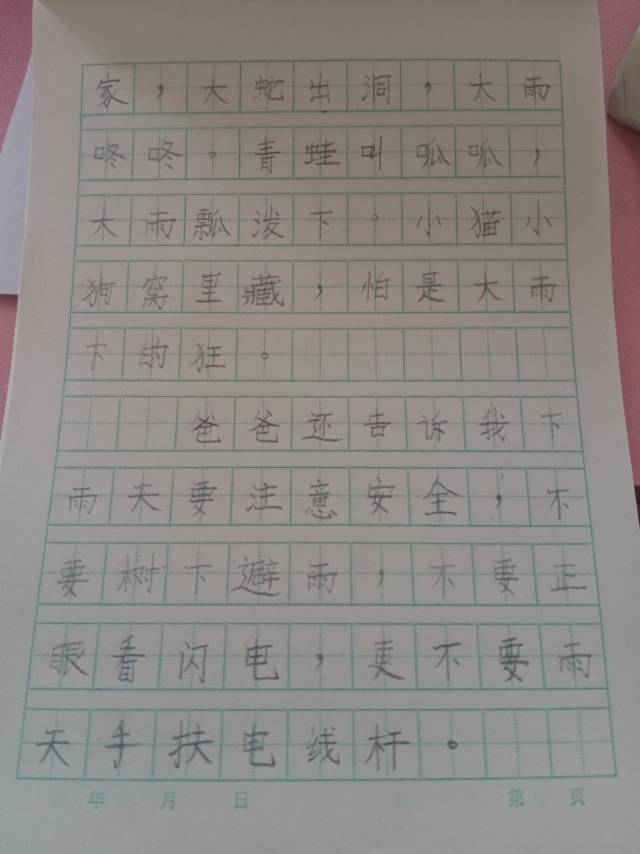 家，大蛇出洞，大雨
咚咚。青蛙叫呱呱，
大雨瓢泼下。小猫小
狗窝里藏，怕是大雨
下的狂。
爸爸还告诉我下
雨天要注意安全，不
要树下避雨，不要正
眼看闪电，更不要雨
天手扶电线杆。
年 月 日 第 页